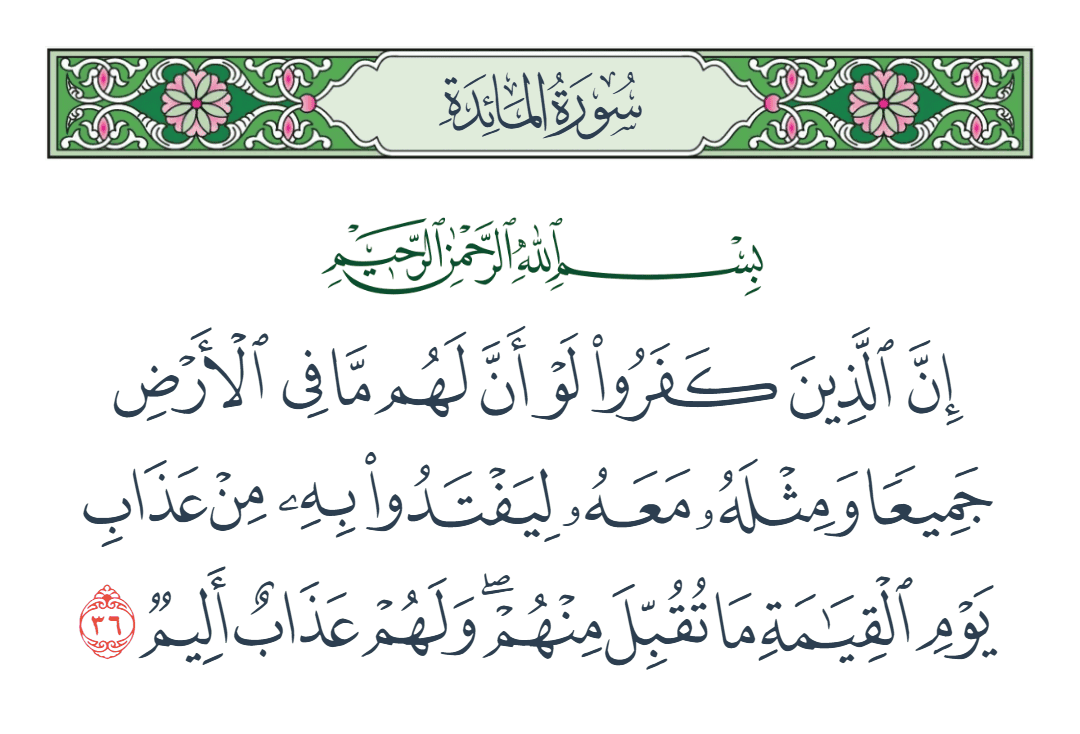 سُورَةُ المَائِدَةِ
بِسْمِ ٱللَّهِ ٱلرَّحْمَٰنِ ٱلرَّحِيمِ
إِنَّ ٱلَّذِينَ كَفَرُوا۟ لَوْ أَنَّ لَهُم مَّا فِى ٱلْأَرْضِ
جَمِيعًا وَمِثْلَهُۥ مَعَهُۥ لِيَفْتَدُوا۟ بِهِۦ مِنْ عَذَابِ
يَوْمِ ٱلْقِيَـٰمَةِ مَا تُقُبِّلَ مِنْهُمْ ۖ وَلَهُمْ عَذَابٌ أَلِيمٌ ٣٦